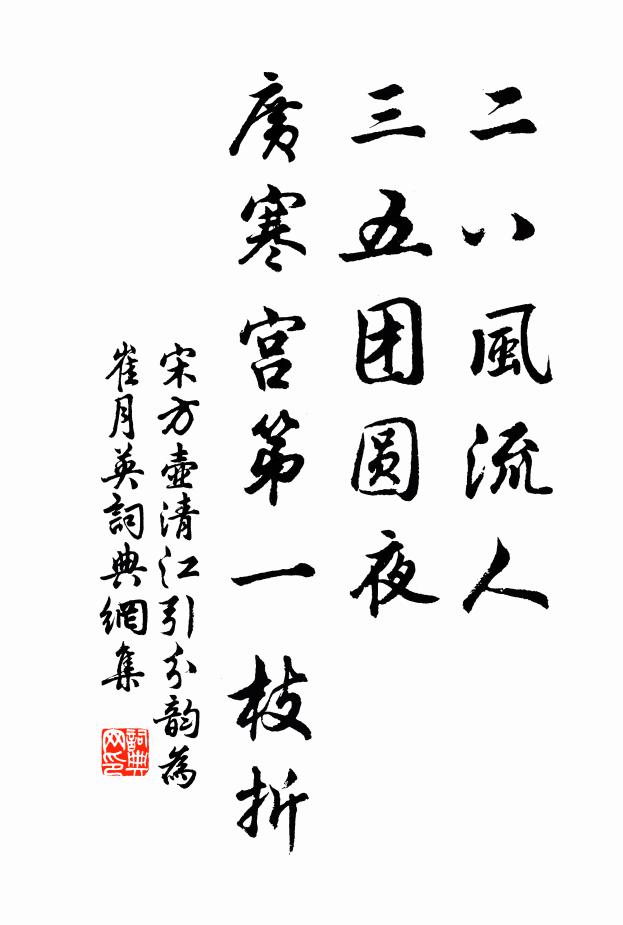 二八風流人
三五团圆夜
廣寒宮第一枝折
宋方壺清江引分韵為
崔月英詞典網集
詞典网印